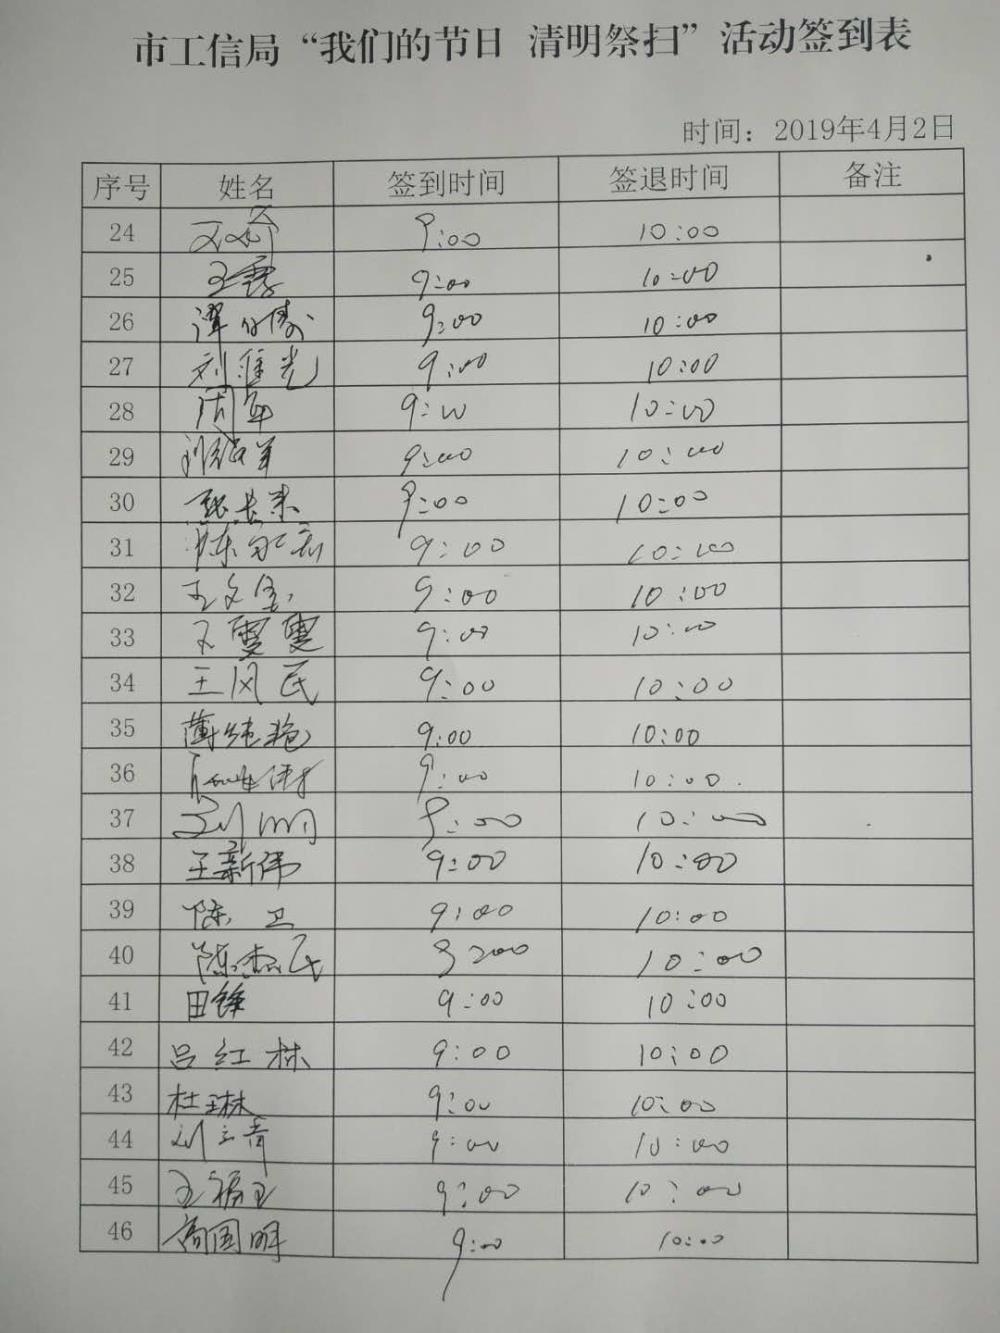 市工信局“我们的节日 清明祭扫”活动签到表
时间：2019年4月2日
序号 姓名 签到时间 签退时间 备注
24 9:00 10:00
25 王霞 9:00 10:00
26 9:00 10:00
27 刘维光 9:00 10:00
28 周军 9:00 10:00
29 9:00 10:00
30 9:00 10:00
31 9:00 10:00
32 王文宝 9:00 10:00
33 王雯雯 9:00 10:00
34 王风民 9:00 10:00
35 薄纯艳 9:00 10:00
36 9:00 10:00
37 刘明 9:00 10:00
38 王新伟 9:00 10:00
39 陈卫 9:00 10:00
40 陈杰民 9:00 10:00
41 田锋 9:00 10:00
42 吕红林 9:00 10:00
43 杜琳 9:00 10:00
44 刘立青 9:00 10:00
45 王福玉 9:00 10:00
46 高国明 9:00 10:00